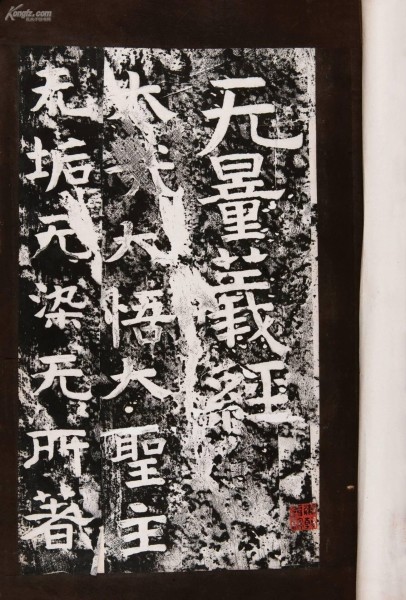 Kongfz.com
无量義經
大哉大悟大聖主
无垢无染无所著